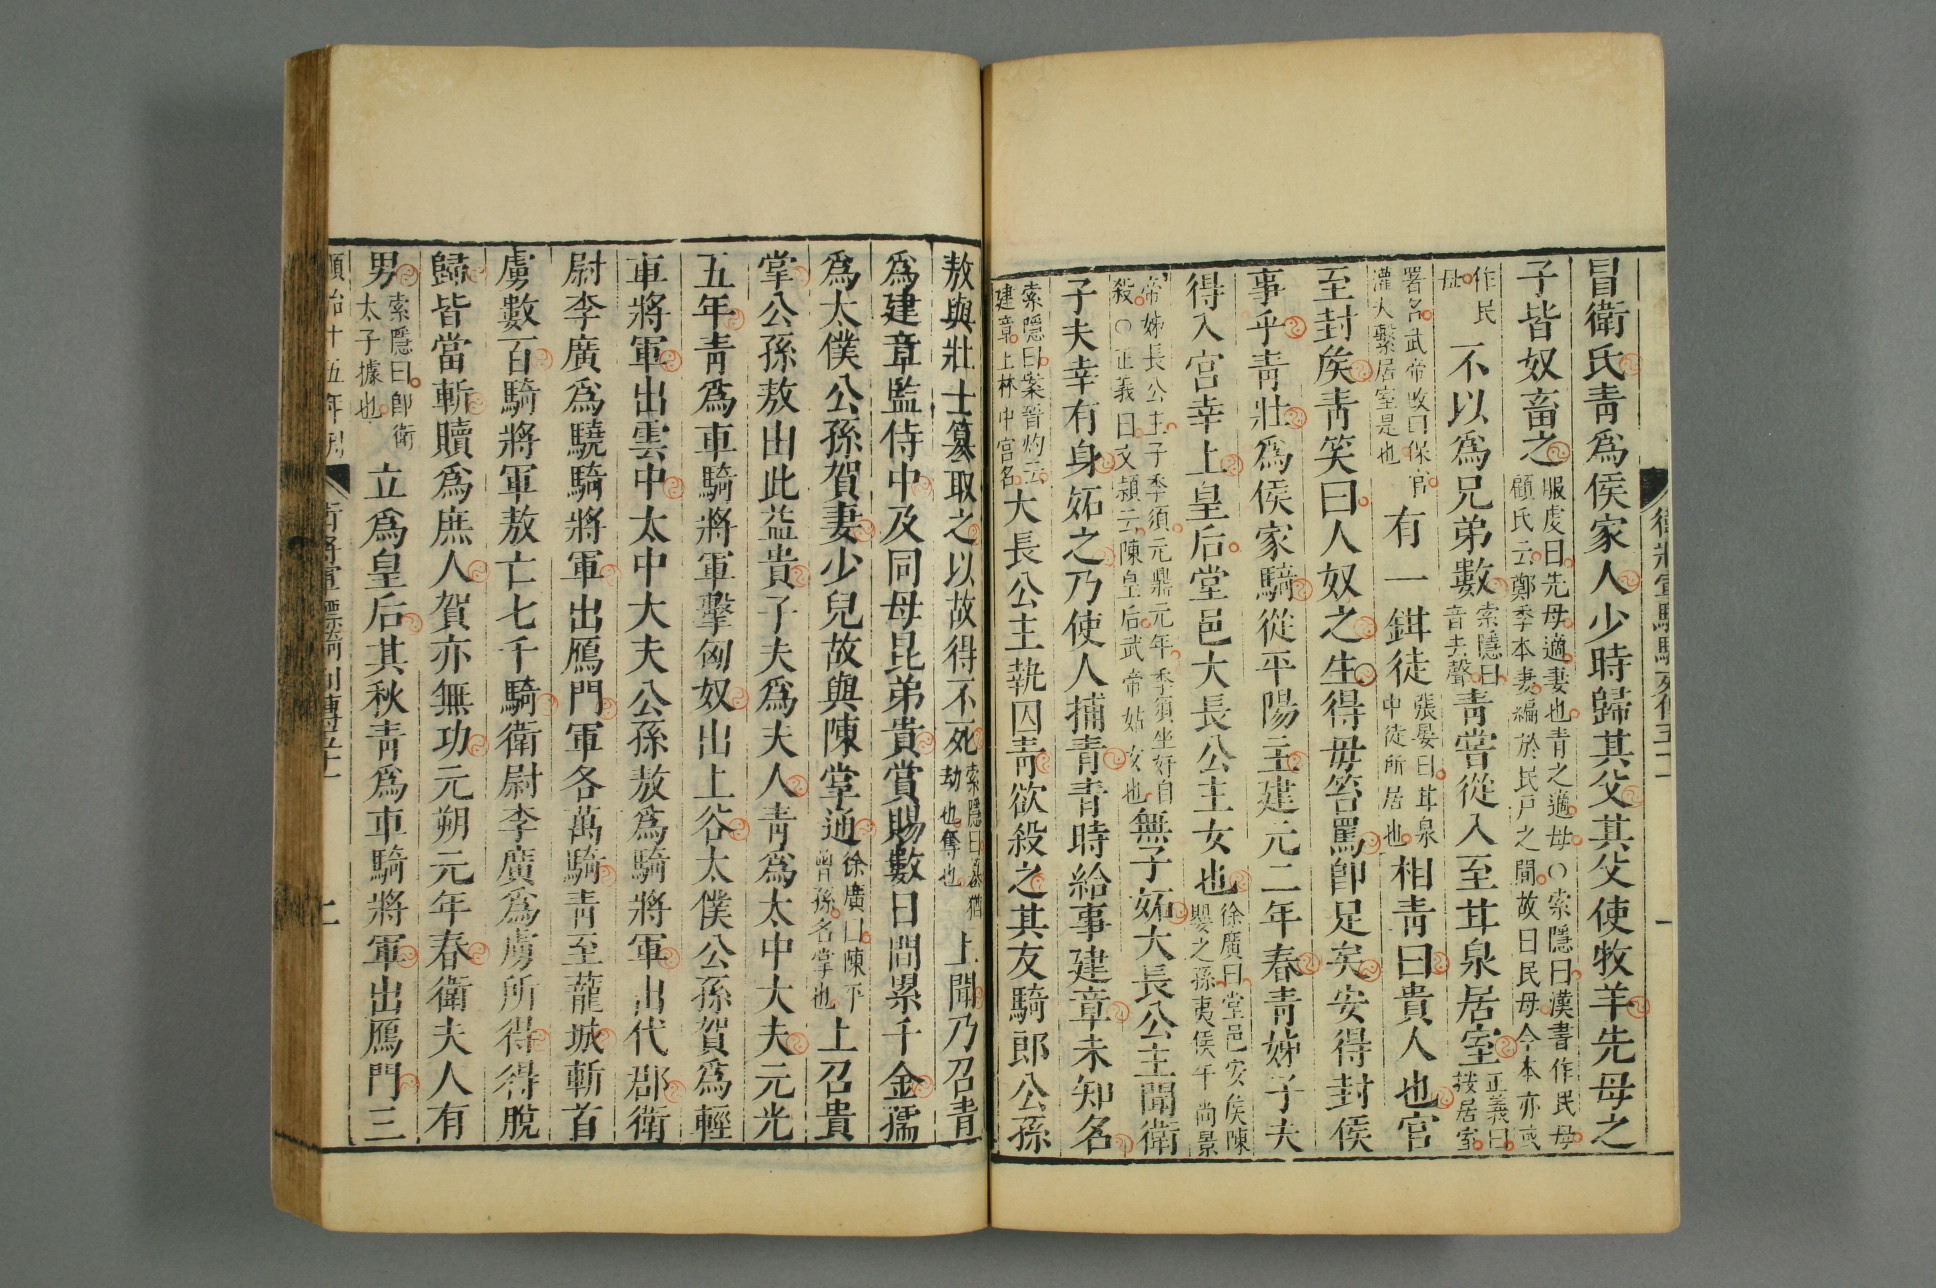 冒衛氏青爲侯家人少時歸其父其父使牧羊先母之
子皆奴畜之服虔曰先母適妻也青之適母○索隱曰漢書作民母顧氏云鄭季本妻編於民戶之間故曰民母今本亦或
作民母不以爲兄弟數索隱曰音去聲青嘗從入至甘泉居室正義曰按居室
署名武帝改曰保宮灌夫繫居室是也有一鉗徒張晏曰甘泉中徒所居也相青曰貴人也官
至封侯青笑曰人奴之生得毋笞罵卽足矣安得封侯
事乎青壯爲侯家騎從平陽主建元二年春青姊子夫
得入宮幸上皇后堂邑大長公主女也徐廣曰堂邑安侯陳嬰之孫夷侯午尚景
帝姊長公主子季須元鼎元年季須坐奸自殺○正義曰文穎云陳皇后武帝姑女也無子妬大長公主聞衛
子夫幸有身妬之乃使人捕青青時給事建章未知名
索隱曰案晉灼云建章上林中宮名大長公主執囚青欲殺之其友騎郎公孫
敖與壯士篡取之以故得不死索隱曰篡猶劫也奪也上聞乃召青
爲建章監侍中及同母昆弟貴賞賜數日間累千金孺
爲太僕公孫賀妻少兒故與陳掌通徐廣曰陳平曾孫名掌也上召貴
掌公孫敖由此益貴子夫爲夫人青爲太中大夫元光
五年青爲車騎將軍擊匈奴出上谷太僕公孫賀爲輕
車將軍出雲中太中大夫公孫敖爲騎將軍出代郡衛
尉李廣爲驍騎將軍出鴈門軍各萬騎青至蘢城斬首
虜數百騎將軍敖亡七千騎衛尉李廣爲虜所得得脫
歸皆當斬贖爲庶人賀亦無功元朔元年春衛夫人有
男索隱曰卽衛太子據也立爲皇后其秋青爲車騎將軍出鴈門三